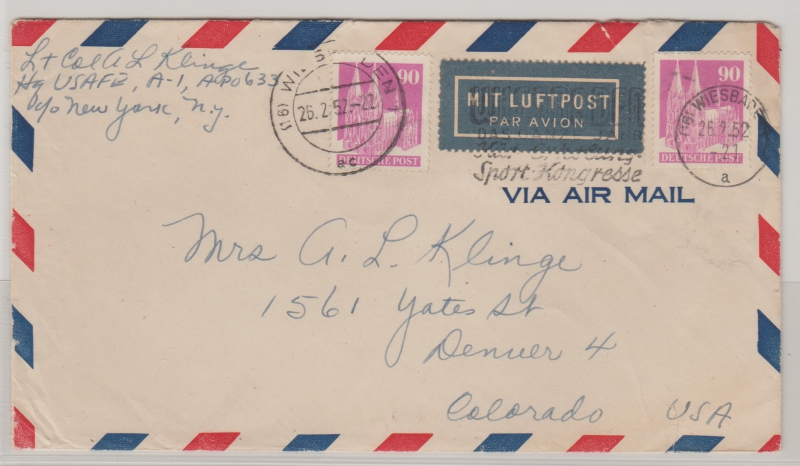 Lt Col A L Klinge
Hq USAFE, A-1, APO 633
c/o New York, N.Y.
(16) WIESBADEN 1
26.2.52.-22
ae
90
DEUTSCHE POST
MIT LUFTPOST
PAR AVION
WIESBADEN
DAS
Kur-Erholung-
Sport-Kongresse
90
DEUTSCHE POST
(16) WIESBADE
26.2.52
a
VIA AIR MAIL
Mrs A. L. Klinge
1561 Yates St
Denver 4
Colorado USA